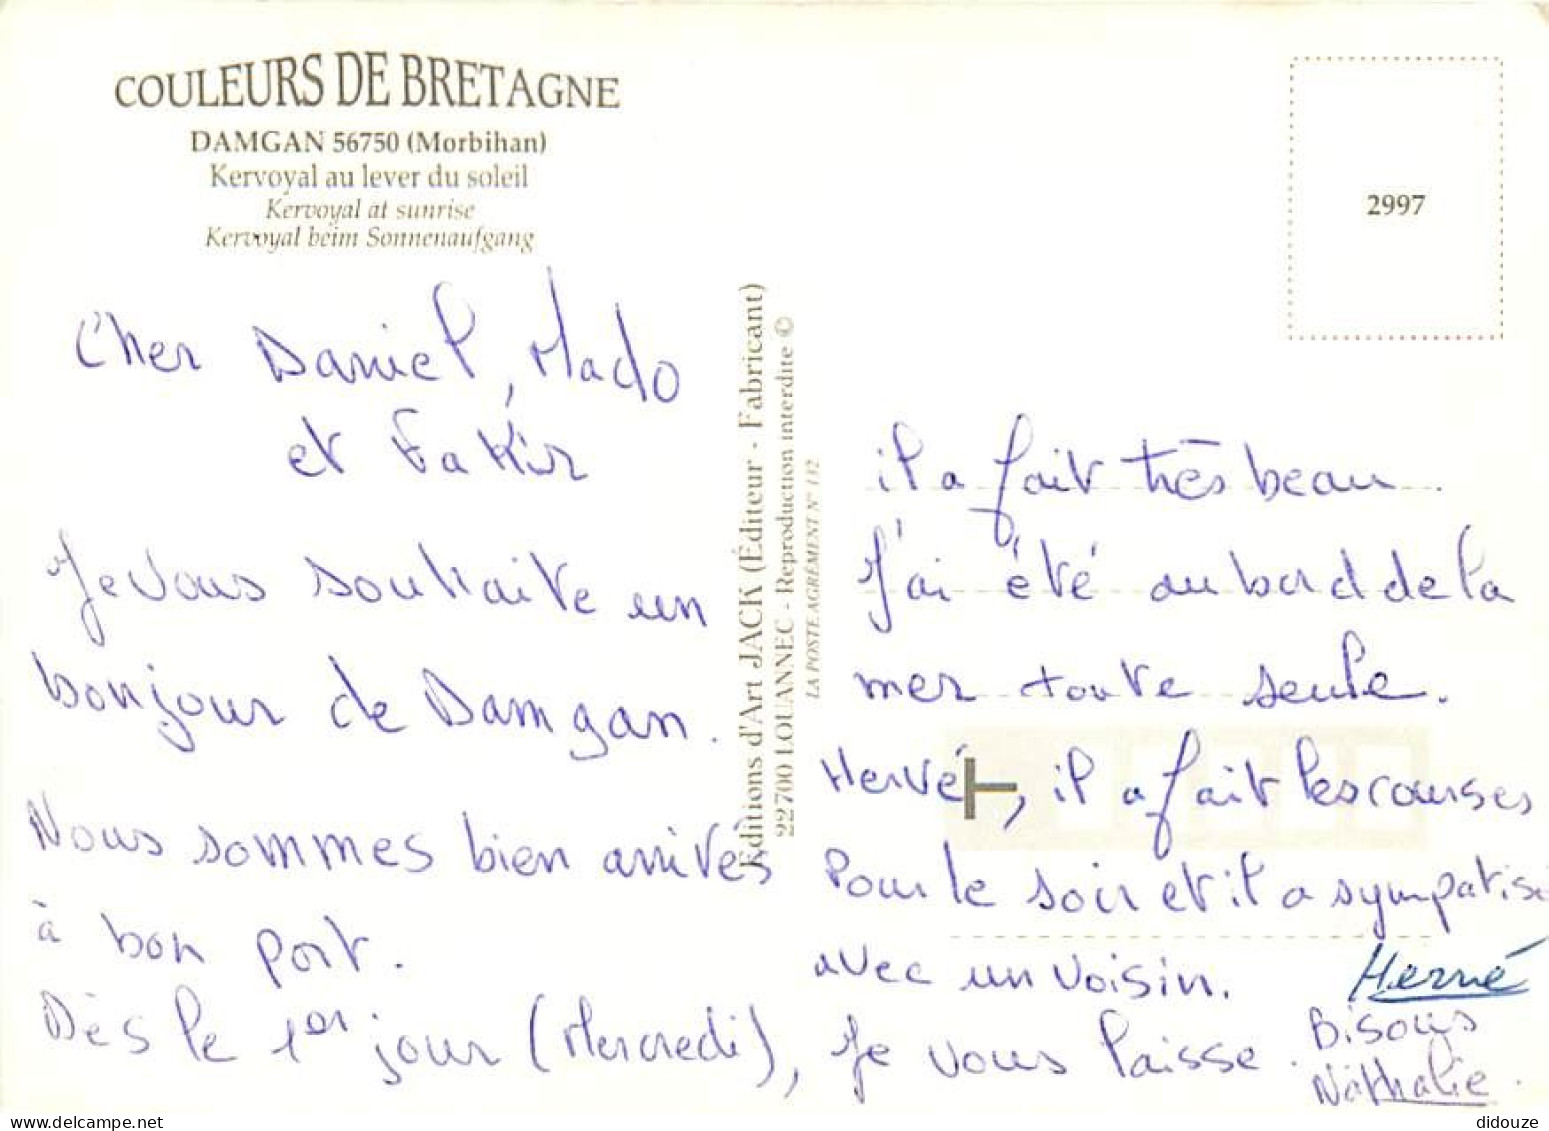 COULEURS DE BRETAGNE
DAMGAN 56750 (Morbihan)
Kervoyal au lever du soleil
Kervoyal at sunrise
Kervoyal beim Sonnenaufgang
2997
Cher Daniel, Mado
et Fakir
Je vous souhaite un
bonjour de Damgan.
Nous sommes bien arrivés
à bon port.
Dès le 1er jour (Mercredi),
Editions d'Art JACK (Éditeur - Fabricant)
22700 LOUANNEC - Reproduction interdite ©
LA POSTE AGRÉMENT N° 132
il a fait très beau.
J'ai été au bord de la
mer toute seule.
Hervé, il a fait les courses
Pour le soir et il a sympatisé
avec un voisin.
Je vous laisse.
Hervé
Bisous
Nathalie.
didouze